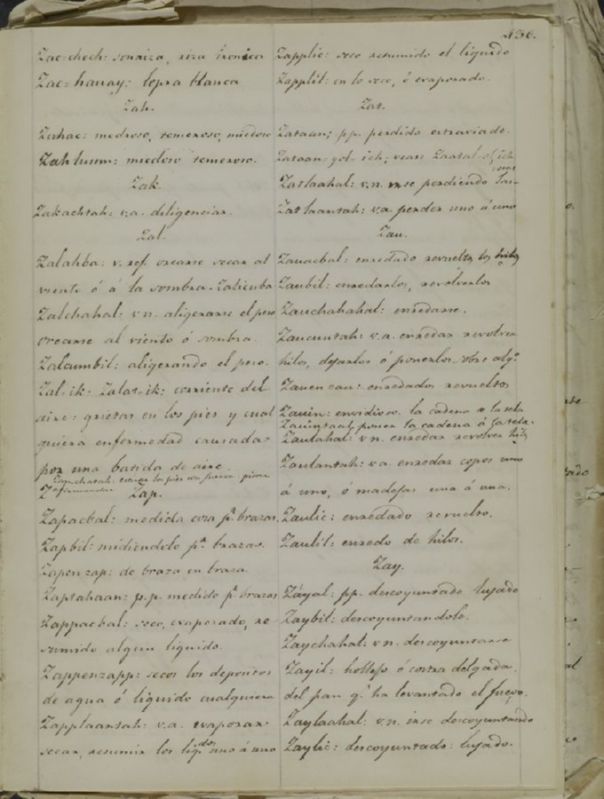 436.
Zac-chech: sonriza, riza ironica
Zac-hauay: lepra blanca
Zah.
Zahac: medroso, temeroso, miedoso
Zahlum: miedoso temeroso.
Zak.
Zakachtah: v.a. diligenciar.
Zal.
Zalahba: v. ref. orearse secar al
viento ó á la sombra.
Zalchahal: v.n. aligerarse el peso
orearse al viento ó sombra.
Zalcumbil: aligerando el peso.
Zal-ik: Zalas-ik: corriente del
aire: grietas en los pies y cual
quiera enfermedad causadas
por una batida de aire.
Zap.
Zapacbal: medida cosa pr. brazas.
Zapbil: midiendolo pr. brazas.
Zapenzap: de braza en braza.
Zaptahaan: p.p. medido pr. brazas
Zappacbal: seco, evaporado, re
sumido algun liquido.
Zappenzapp: secos los depositos
de agua ó liquido cualquiera
Zapplaantah: v.a. evaporar
secar, resumir los liqdos uno á uno
Zapplic: seco resumido el liquido
Zapplil: en lo seco, ó evaporado.
Zat.
Zataan; pp. perdido extraviado.
Zataan-yol-ich; vease Zaatal
Zatlaahal: v.n. irse perdiendo
Zatlaantah: v.a. perder uno á uno
Zau.
Zauacbal: enredado revuelto los hilos
Zaubil: enredarlos, revolverlos
Zauchahahal: enredarse.
Zaucuntah: v.a. enredar revolver
hilos, dejarlos ó ponerlos sobre algo.
Zauen zau: enredados revueltos
Zauin: envidioso. la cadena a la tela
poner la cadena á la tela.
Zaulahal: v.n. enredar revolver hilos
Zaulantah: v.a. enredar copos uno
á uno, ó madejas una á una.
Zaulic: enredado revuelto.
Zaulil: enredo de hilos.
Zay.
Záyal: pp. descoyuntado lujado
Zaybil: descoyuntandolo.
Zaychahal: v.n. descoyuntarse
Zayil: hollejo ó costra delgada.
del pan q. ha levantado el fuego.
Zaylaahal: v.n. irse descoyuntando
Zaylic: descoyuntado: lujado.